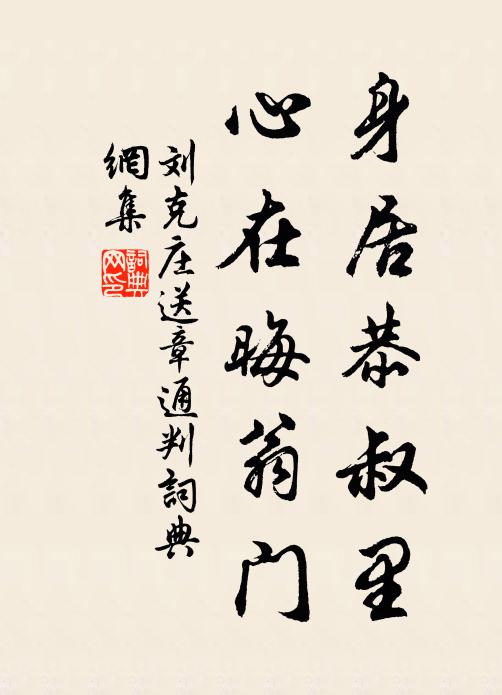 身居恭叔里
心在晦翁门
刘克庄送章通判詞典
網集
詞典
网印